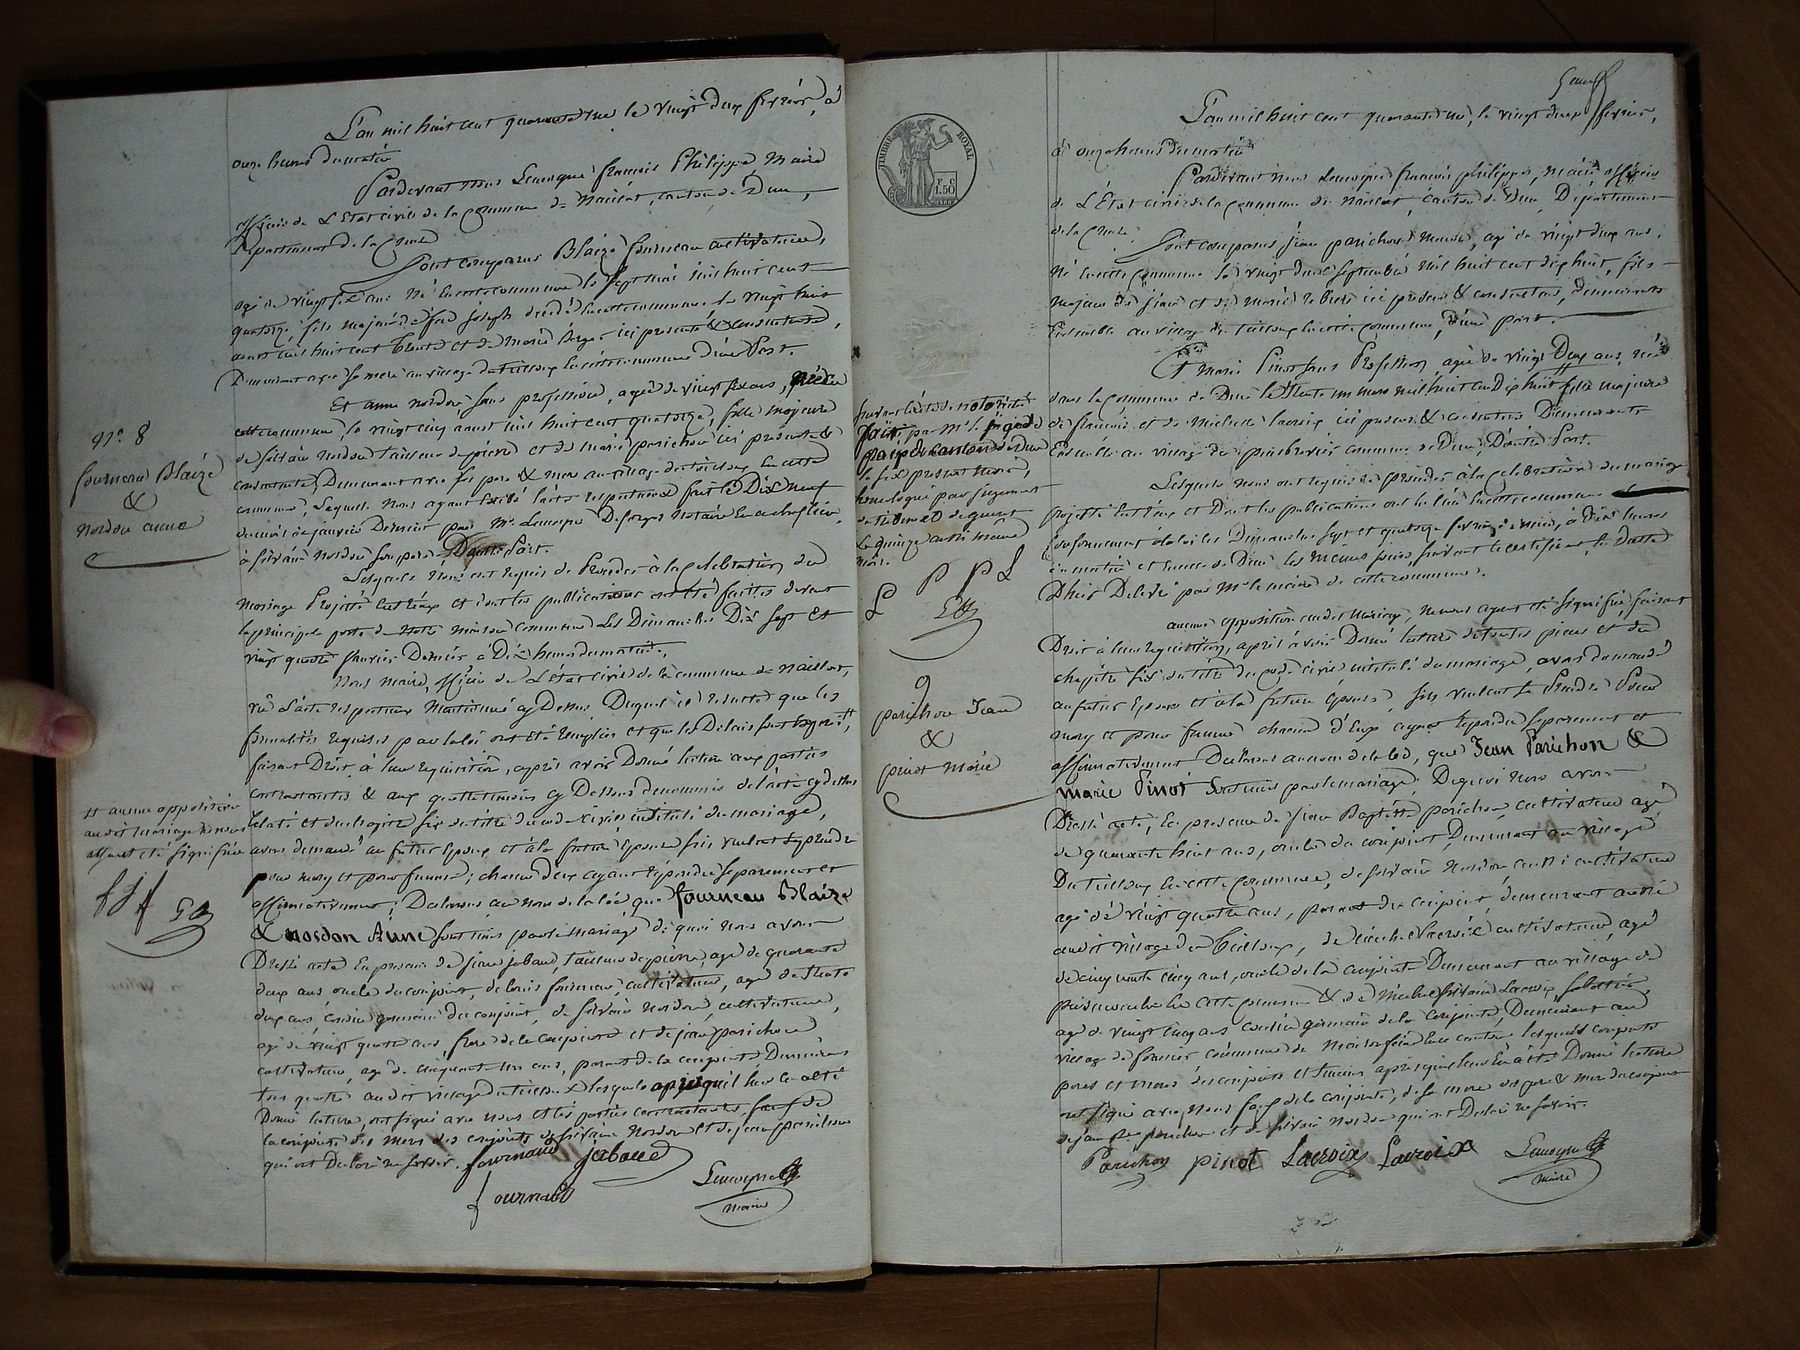 L'an mil huit cent quarante une le vingt deux fevrier, à
onze heures du matin
Pardevant nous Levesque francois Philippe Maire
officier de L'Etat civil de la commune de Naillat, canton de Dun,
Departement de la Creuse
Sont comparus Blaize fourneau cultivateur,
agé de vingt six ans né en cette commune le sept mai mil huit cent
quatorze, fils majeur de feu joseph décédé en cette commune le vingt huit
aout mil huit cent trente et de marie Berger ici presente & consentante,
Demeurant avec sa mere au village du teilloux en cette commune D'une Part.
Et anne nordon, sans profession, agée de vingt six ans, née en
cette commune, le vingt cinq aout mil huit cent quatorze, fille majeure
de silvain nordon tailleur de pierre et de marie parichon ici presents &
consentants, Demeurant avec ses pere & mere au village du teilloux en cette
commune, Lesquels nous ayant exibé l'acte respectueux fait le Dix neuf
du mois de janvier Dernier par Me. Desforges Notaire
à silvain nordon son pere D'autre Part.
Lesquels Nous ont requis de Proceder à la Celebration du
mariage Projetté entr'eux et dont les publications ont été faites devant
la principale porte de Notre maison commune Les Dimanches Dix sept et
vingt quatre janvier Dernier à Dix heures du matin.
Nous maire, officier de L'état civil de la commune de naillat,
vû L'acte respectueux Mentionné cy Dessus Duquel il resulte que les
formalités requises par la loi ont été remplies et que les Delais sont expirés,
faisant Droit à leur requisition, après avoir Donné lecture aux parties
contractantes & aux quatre temoins cy Dessous denommés de l'acte cy dessus
relaté et du chapitre six du titre du code civil intitulé du mariage,
avons demandé au futur Epoux et à la future Epouse s'ils veulent se prendre
pour mary et pour femme; chacun d'eux ayant répondu separement et
affirmativement, Declarons au nom de la loi que fourneau Blaize
& nordon Anne sont unis par le mariage de quoi nous avons
Dressé acte En presence de jean jabaud, tailleur de pierre, agé de quarante
deux ans oncle du conjoint, de louis fourneau cultivateur, agé de trente
deux ans, cousin germain du conjoint, de silvain nordon, cultivateur,
agé de vingt quatre ans frere de la conjointe et de jean parichon
cultivateur, agé de cinquante un ans, parent de la conjointe Demeurans
tous quatre audit village du teilloux Lesquels après qu'il leur en a été
Donné lecture, ont signé avec nous et les parties contractantes, sauf de
la conjointe des meres des conjoints de silvain Nordon et de jean parichon
qui ont Declaré ne savoir. fournaud jabaud
fournaud
Levesque
maire
No. 8
fourneau Blaize
&
nordon anne
et aucune opposition
audit mariage ne nous
ayant été signifiée
TIMBRE ROYAL
1.50
L'an mil huit cent quarante un, le vingt deux fevrier,
à onze heures du matin
Pardevant nous Levesque francois philippe, maire officier
de L'État civil de la commune de Naillat, Canton de Dun, Département
de la Creuse.
Sont comparus jean parichon, agé de vingt deux ans,
né en cette commune le vingt deux septembre mil huit cent dix huit, fils
majeur de jean et de marie ici presens & consentans, demeurants
Ensemble au village du teilloux en cette commune, d'une part.
Et marie Pinot sans Profession, agée de vingt Deux ans, née
dans la commune de Dun le trente un mars mil huit cent Dix huit fille majeure
de francois et de michelle lacroix ici presens & consentans Demeurants
Ensemble au village de commune de Dun, D'autre Part.
Lesquels nous ont requis de proceder à la celebration du mariage
projetté entr'eux et Dont les publications ont eu lieu en cette commune
conformement à la loi les Dimanches sept et quatorze fevrier à Dix heures
du matin et en celle de Dun les memes jours, suivant le certificat en Datte
D'hier Delivré par Mr. le maire de cette commune.
aucune opposition audit Mariage, ne nous ayant été signifiée, faisant
Droit à leur requisition, après avoir Donné lecture de toutes pieces et du
chapitre six du titre du code civil intitulé du mariage, avons demandé
au futur Epoux et à la future épouse, s'ils veulent se Prendre Pour
mary et pour femme chacun d'Eux ayant répondu separement et
affirmativement Declarons au nom de la loi, que Jean Parichon &
marie Pinot sont unis par le mariage, De quoi nous avons
Dressé acte, En presence de jean Baptiste parichon cultivateur agé
de quarante huit ans, oncle du conjoint, Demeurant au village
Du teilloux en cette Commune, de silvain Nordon, aussi cultivateur
agé de vingt quatre ans, parent du conjoint, demeurant aussi
audit village du teilloux, de lacroix cultivateur, agé
de cinquante cinq ans, oncle de la conjointe Demeurant au village de
en cette commune & de silvain Lacroix sabotier,
agé de vingt cinq ans cousin germain de la conjointe, Demeurant au
village de commune de Maisonfeine en ce canton, lesquels conjoints
peres et meres des conjoints et temoins après que leur En a été Donné lecture
ont signé avec nous sauf de la conjointe, de sa mere des pere & mere du conjoint
de jean Bte. parichon et de silvain Nordon qui ont Declaré ne savoir.
Parichon pinot Lacroix Lacroix
Levesque
maire
suivant l'acte de notoriété
fait par Mr. le juge de
paix du canton de Dun
le six present mois,
homologué par jugement
du tribunal de gueret
le quinze aussi meme
mois.
9
parichon Jean
&
pinot Marie